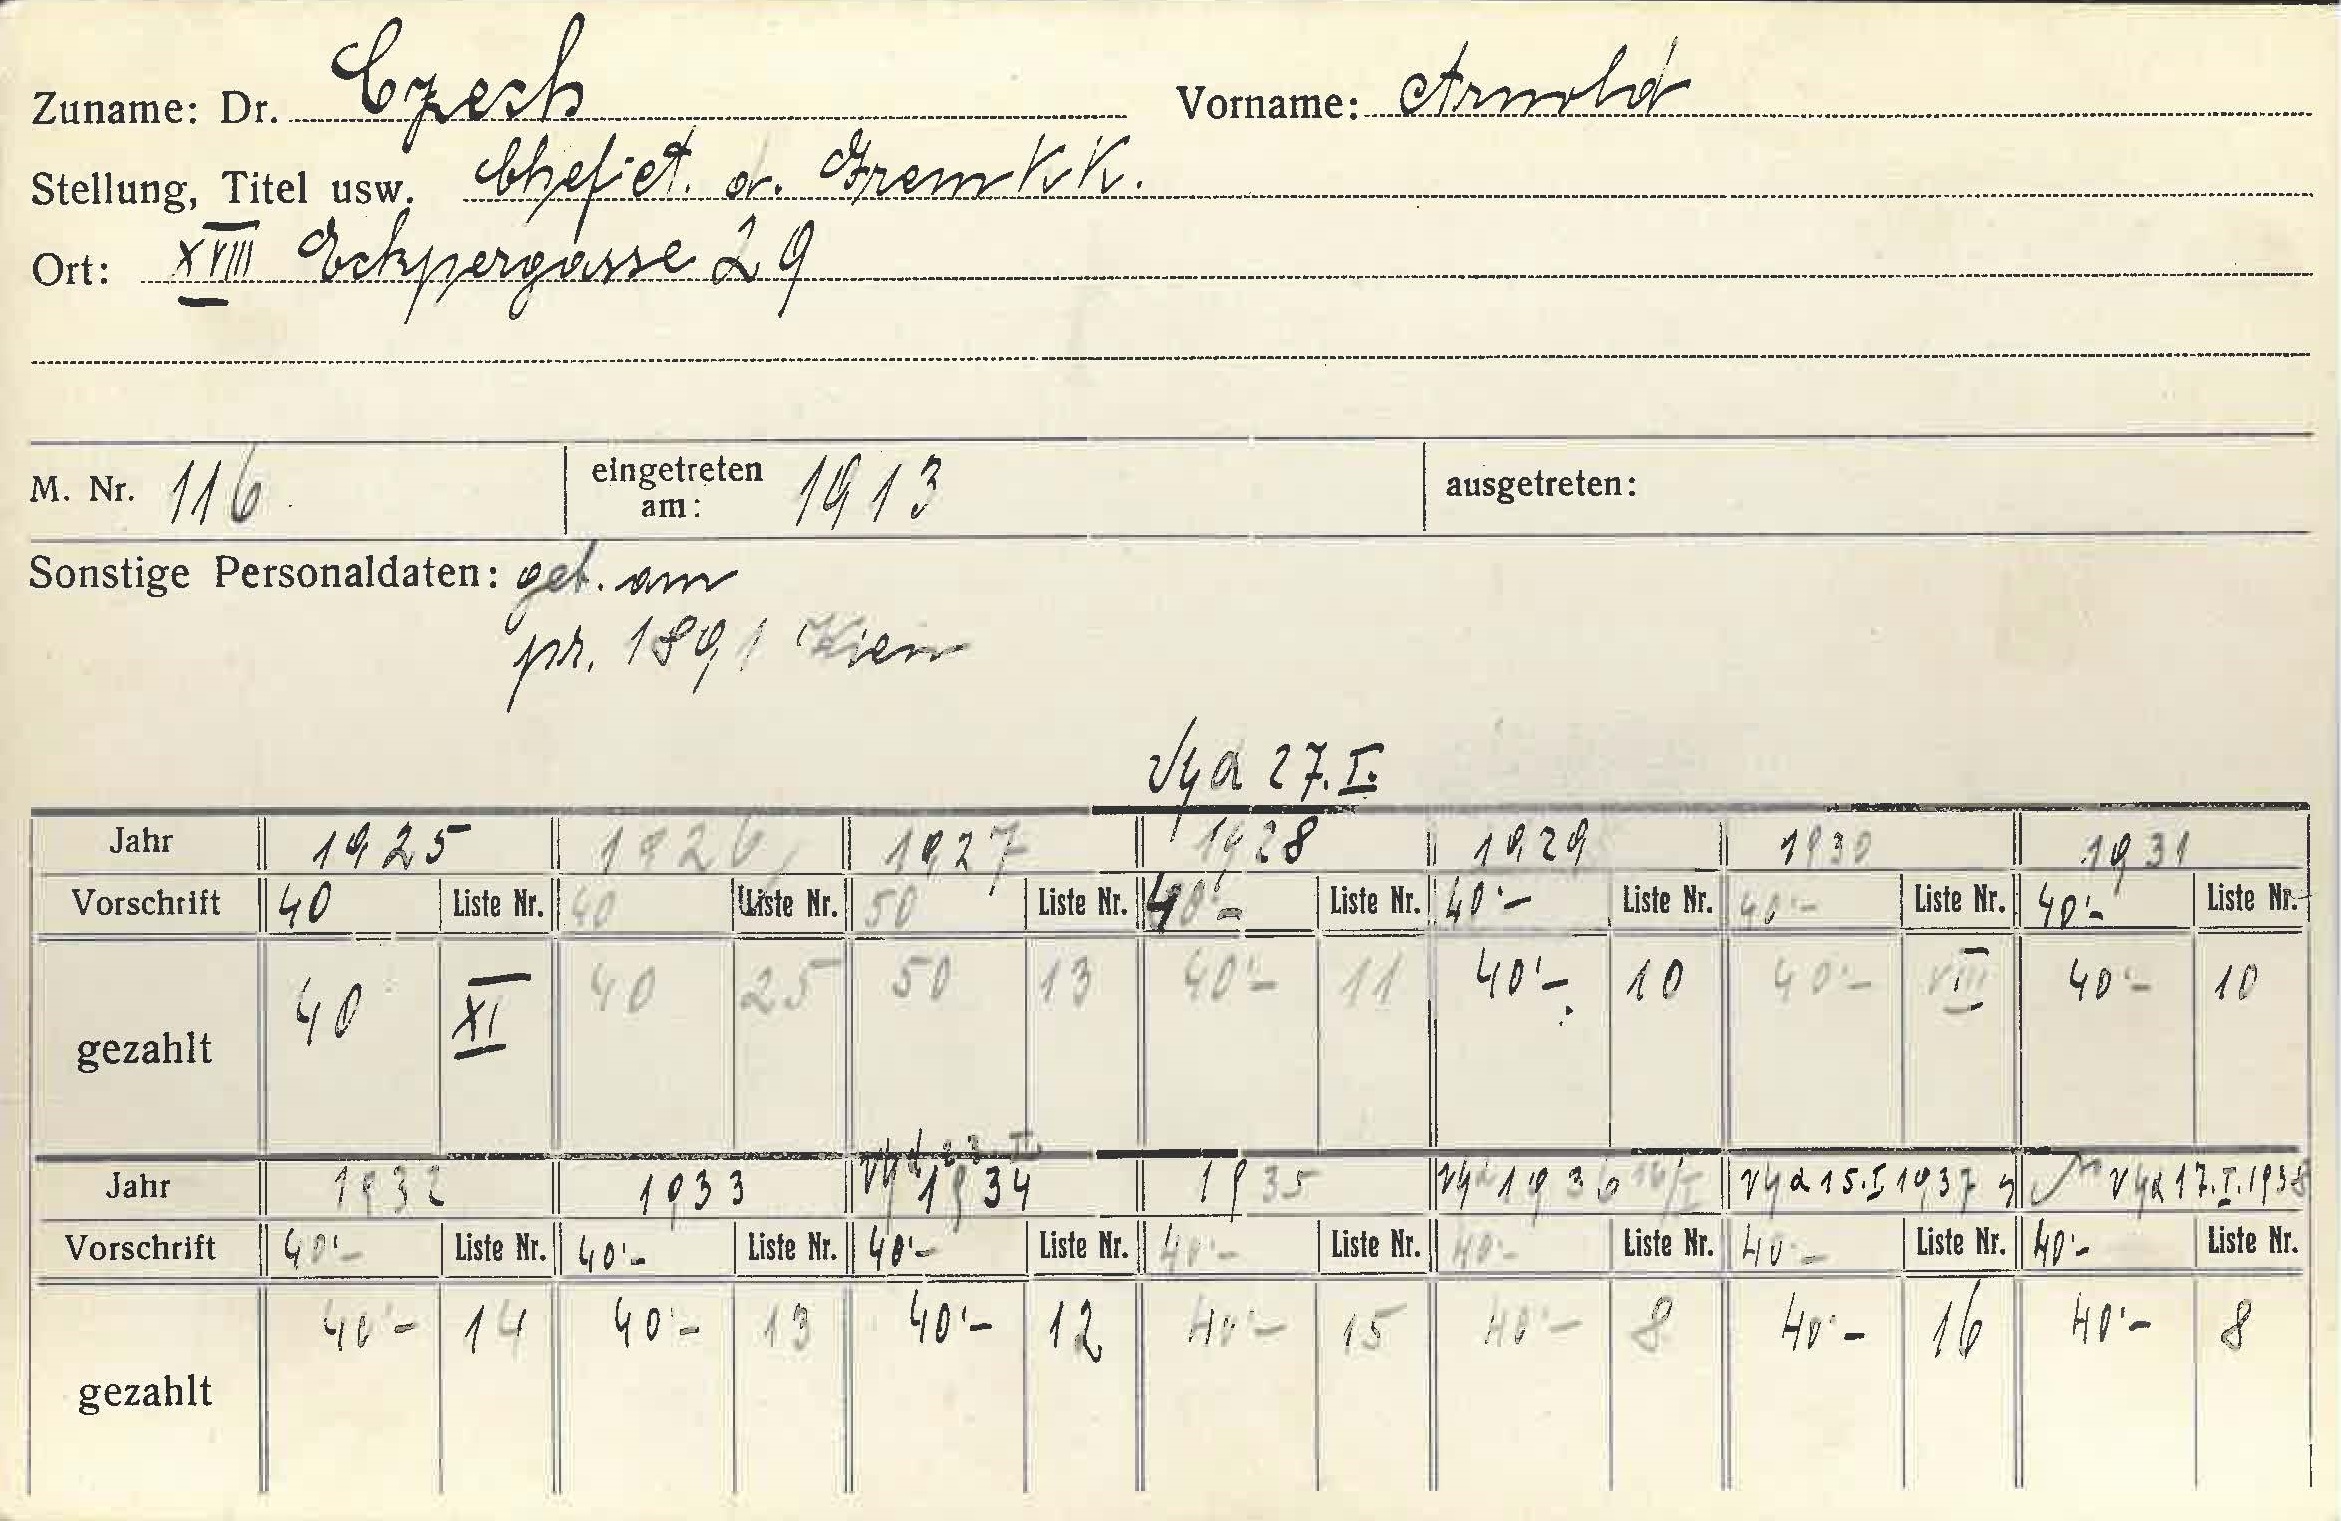 Zuname: Dr. Czech Vorname: Arnold
Stellung, Titel usw. Chefjet. d. Grem KK.
Ort: XVIII Eckpergasse 29
M. Nr. 116. eingetreten am: 1913 ausgetreten:
Sonstige Personaldaten: geb. am
pr. 1891 Wien
27. I.
Jahr 1925 1926 1927 1928 1929 1930 1931
Vorschrift 40 Liste Nr. 40 Liste Nr. 50 Liste Nr. 40'- Liste Nr. 40'- Liste Nr. 40'- Liste Nr. 40'- Liste Nr.
gezahlt 40 XI 40 25 50 13 40'- 11 40'- 10 40'- VIII 40'- 10
Jahr 1932 1933 1934 1935 1936 16/I 15.I 1937 17.I.1938
Vorschrift 40'- Liste Nr. 40'- Liste Nr. 40'- Liste Nr. 40'- Liste Nr. 40'- Liste Nr. 40'- Liste Nr. 40'- Liste Nr.
gezahlt 40'- 14 40'- 13 40'- 12 40'- 15 40'- 8 40'- 16 40'- 8